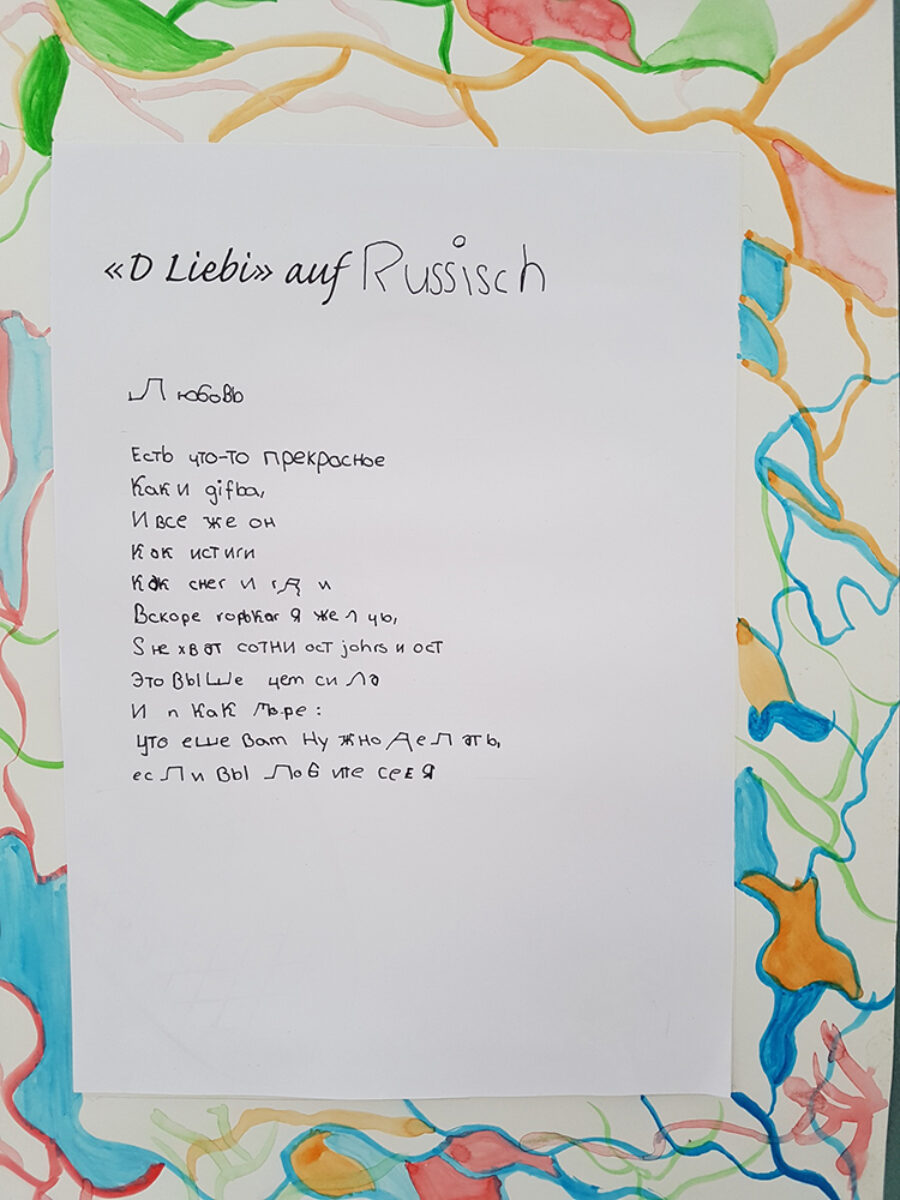 «D Liebi» auf Russisch
Любовь
Есть что-то прекрасное
Как и gifba,
И все же он
Как истиги
Как снег и гд и
Вскоре горькая я желчь,
S не хват сотни ост johrs и ост
Это выше чет сила
И п как море:
Что еше вам нужно делать,
если вы ловите себя